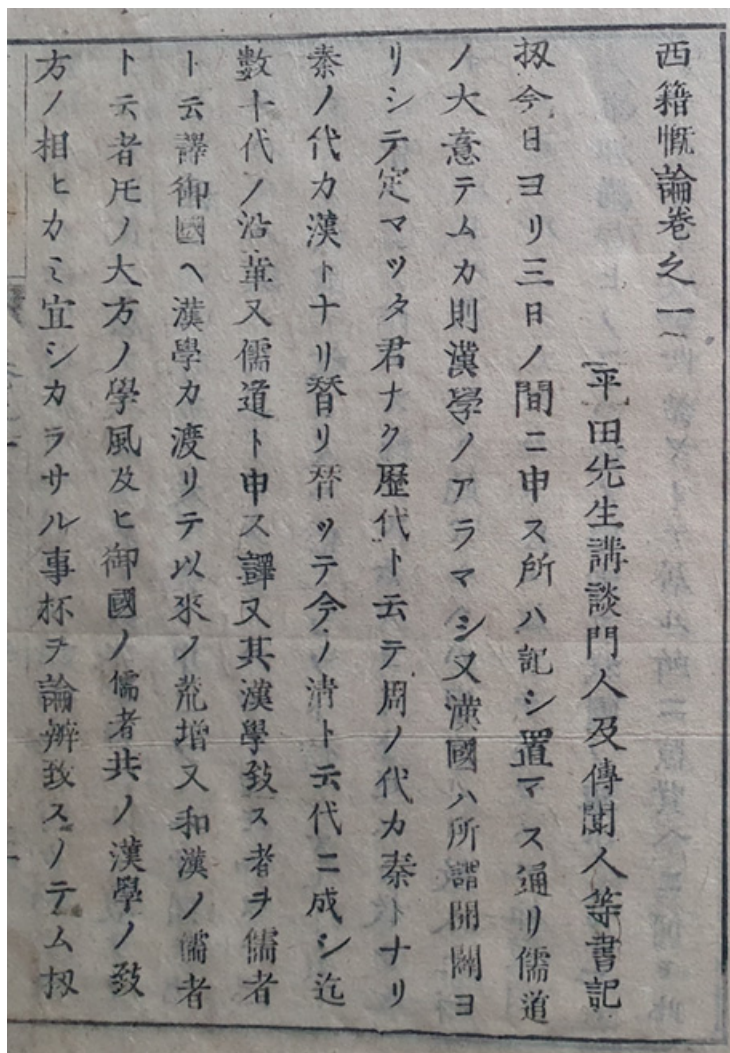 西籍慨論卷之一
平田先生講談門人及傳聞人等書記
扨今日ヨリ三日ノ間ニ申ス所ハ記シ置マス通リ儒道
ノ大意テムカ則漢學ノアラマシ又漢國ハ所謂開闢ヨ
リシテ定マツタ君ナク歷代ト云テ周ノ代カ秦トナリ
秦ノ代カ漢トナリ替リ替ツテ今ノ清ト云代ニ成シ迄
數十代ノ沿革又儒道ト申ス譯又其漢學致ス者ヲ儒者
ト云譯御國ヘ漢學カ渡リテ以來ノ荒增又和漢ノ儒者
ト云者𪜈ノ大方ノ學風及ヒ御國ノ儒者共ノ漢學ノ致
方ノ相ヒカミ宜シカラサル事杯ヲ論辨致スノテム扨